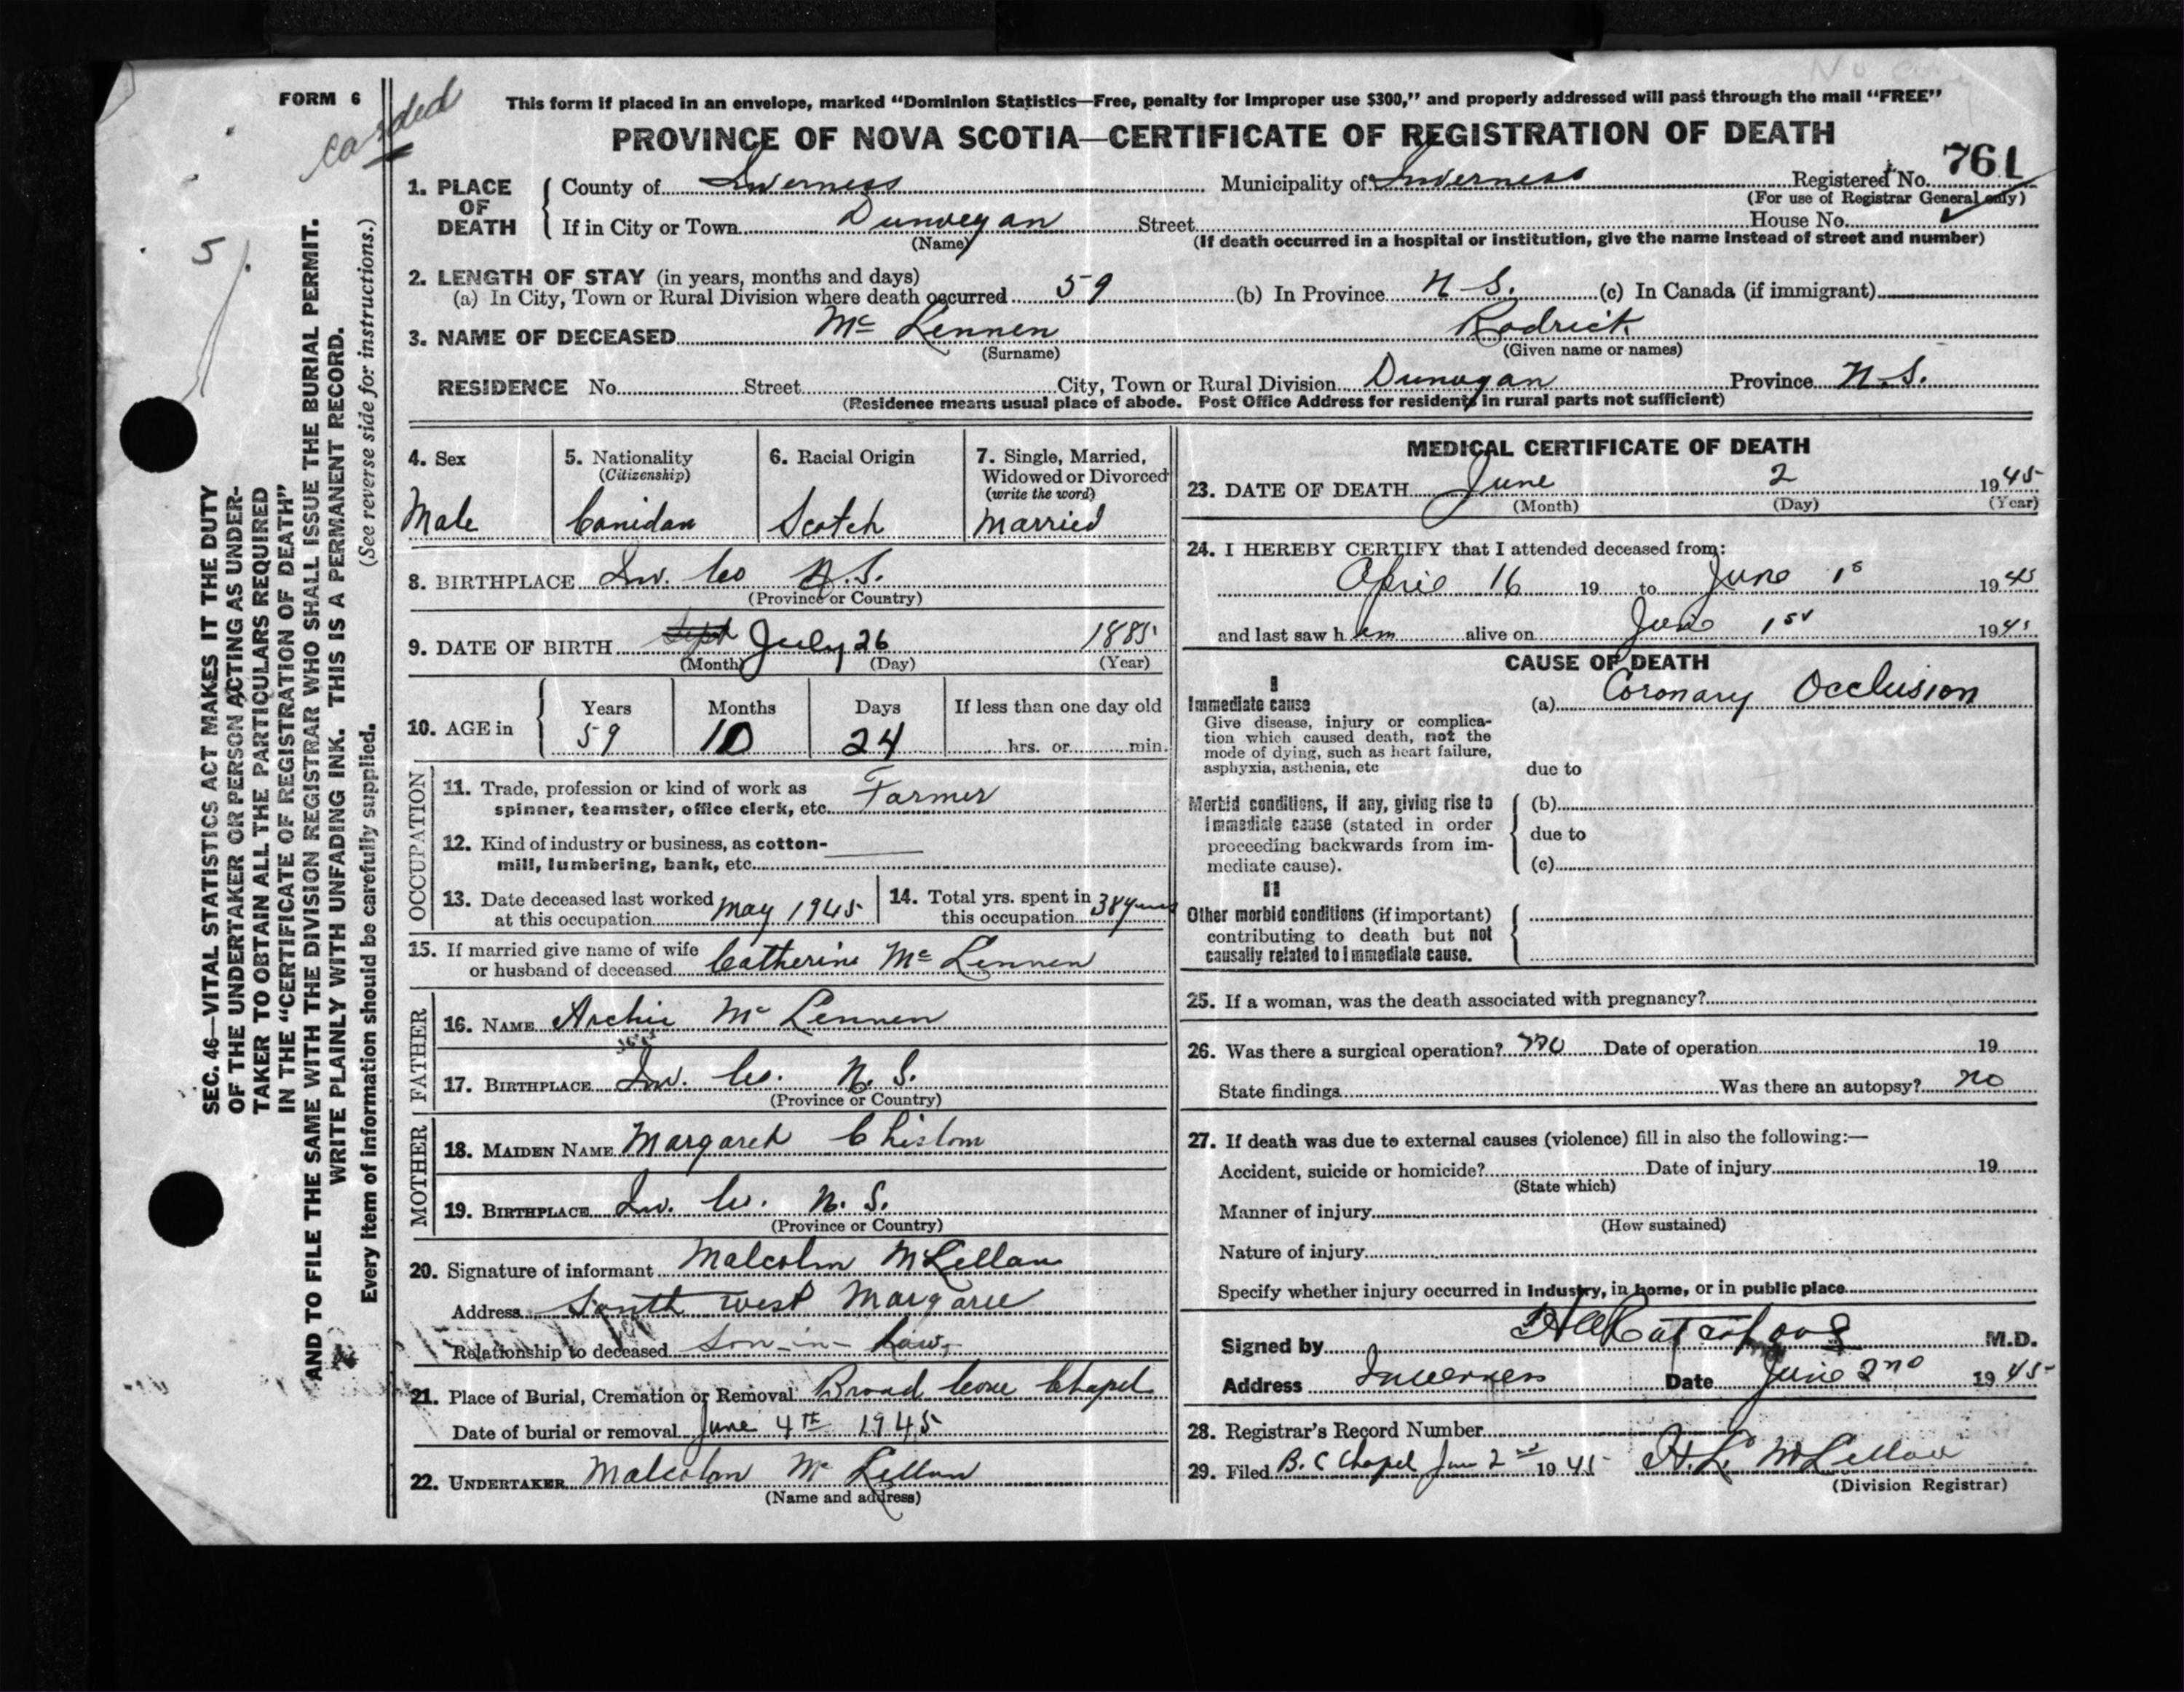 FORM 6
carded
This form if placed in an envelope, marked "Dominion Statistics—Free, penalty for improper use $300," and properly addressed will pass through the mail "FREE"
PROVINCE OF NOVA SCOTIA—CERTIFICATE OF REGISTRATION OF DEATH
761
1. PLACE OF DEATH County of Inverness Municipality of Inverness Registered No.
(For use of Registrar General only)
If in City or Town Dunvegan Street House No.
(Name) (If death occurred in a hospital or institution, give the name instead of street and number)
2. LENGTH OF STAY (in years, months and days)
(a) In City, Town or Rural Division where death occurred 59 (b) In Province N.S. (c) In Canada (if immigrant)
3. NAME OF DECEASED Mc Lennen Rodrick
(Surname) (Given name or names)
RESIDENCE No. Street City, Town or Rural Division Dunvgan Province N.S.
(Residence means usual place of abode. Post Office Address for residents in rural parts not sufficient)
4. Sex
Male
5. Nationality
(Citizenship)
Canidan
6. Racial Origin
Scotch
7. Single, Married,
Widowed or Divorced
(write the word)
Married
8. BIRTHPLACE Inv. Co N.S.
(Province or Country)
9. DATE OF BIRTH Sept July 26 1885
(Month) (Day) (Year)
10. AGE in Years Months Days If less than one day old
59 10 24 hrs. or min.
OCCUPATION
11. Trade, profession or kind of work as
spinner, teamster, office clerk, etc. Farmer
12. Kind of industry or business, as cotton-
mill, lumbering, bank, etc.
13. Date deceased last worked
at this occupation May 1945
14. Total yrs. spent in
this occupation 38 years
15. If married give name of wife
or husband of deceased Catherine Mc Lennen
FATHER
16. NAME Archie Mc Lennen
17. BIRTHPLACE Inv. Co. N. S.
(Province or Country)
MOTHER
18. MAIDEN NAME Margaret Chislom
19. BIRTHPLACE Inv. Co. N. S.
(Province or Country)
20. Signature of informant Malcolm McLellan
Address South West Margaree
Relationship to deceased Son-in-Law
21. Place of Burial, Cremation or Removal Broad Cove Chapel
Date of burial or removal June 4th 1945
22. UNDERTAKER Malcolm Mc Lellan
(Name and address)
MEDICAL CERTIFICATE OF DEATH
23. DATE OF DEATH June 2 1945
(Month) (Day) (Year)
24. I HEREBY CERTIFY that I attended deceased from:
April 16 19 to June 1s 1945
and last saw him alive on June 1st 1945
CAUSE OF DEATH
I
Immediate cause
Give disease, injury or complica-
tion which caused death, not the
mode of dying, such as heart failure,
asphyxia, asthenia, etc
(a) Coronary Occlusion
due to
Morbid conditions, if any, giving rise to
immediate cause (stated in order
proceeding backwards from im-
mediate cause).
(b)
due to
(c)
II
Other morbid conditions (if important)
contributing to death but not
causally related to immediate cause.
25. If a woman, was the death associated with pregnancy?
26. Was there a surgical operation? no Date of operation 19
State findings Was there an autopsy? no
27. If death was due to external causes (violence) fill in also the following:—
Accident, suicide or homicide? Date of injury 19
(State which)
Manner of injury
(How sustained)
Nature of injury
Specify whether injury occurred in Industry, in home, or in public place
Signed by M.D.
Address Inverness Date June 2nd 1945
28. Registrar's Record Number
29. Filed B. C Chapel Jun 2nd 1945 H.L. McLellan
(Division Registrar)
SEC. 46—VITAL STATISTICS ACT MAKES IT THE DUTY
OF THE UNDERTAKER OR PERSON ACTING AS UNDER-
TAKER TO OBTAIN ALL THE PARTICULARS REQUIRED
IN THE "CERTIFICATE OF REGISTRATION OF DEATH"
AND TO FILE THE SAME WITH THE DIVISION REGISTRAR WHO SHALL ISSUE THE BURIAL PERMIT.
WRITE PLAINLY WITH UNFADING INK. THIS IS A PERMANENT RECORD.
Every item of information should be carefully supplied. (See reverse side for instructions.)
5